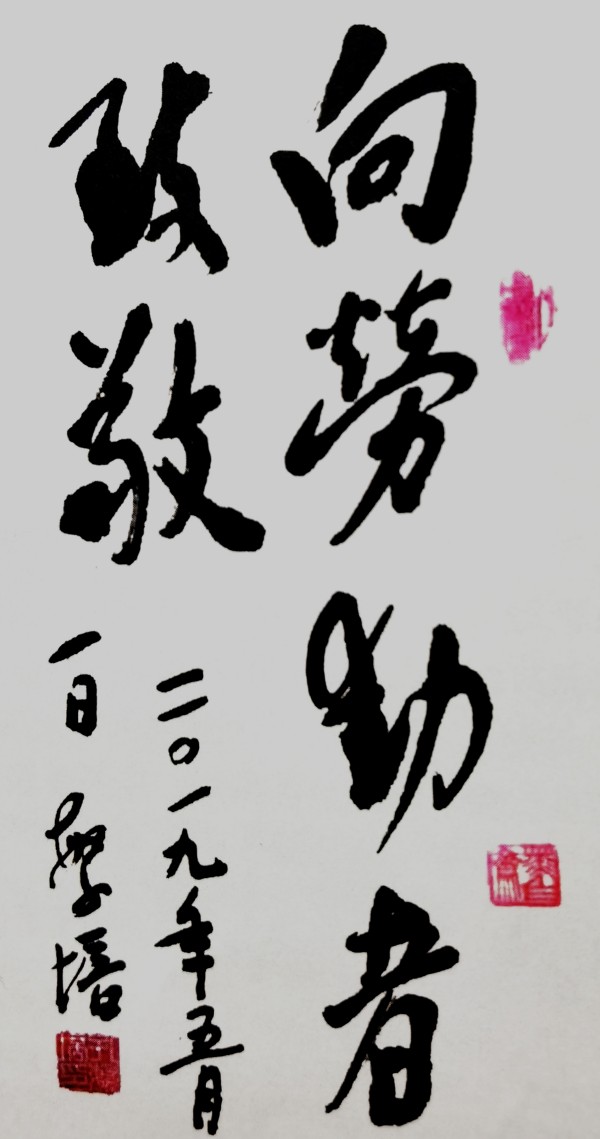 向勞動者
致敬
二〇一九年五月
一日